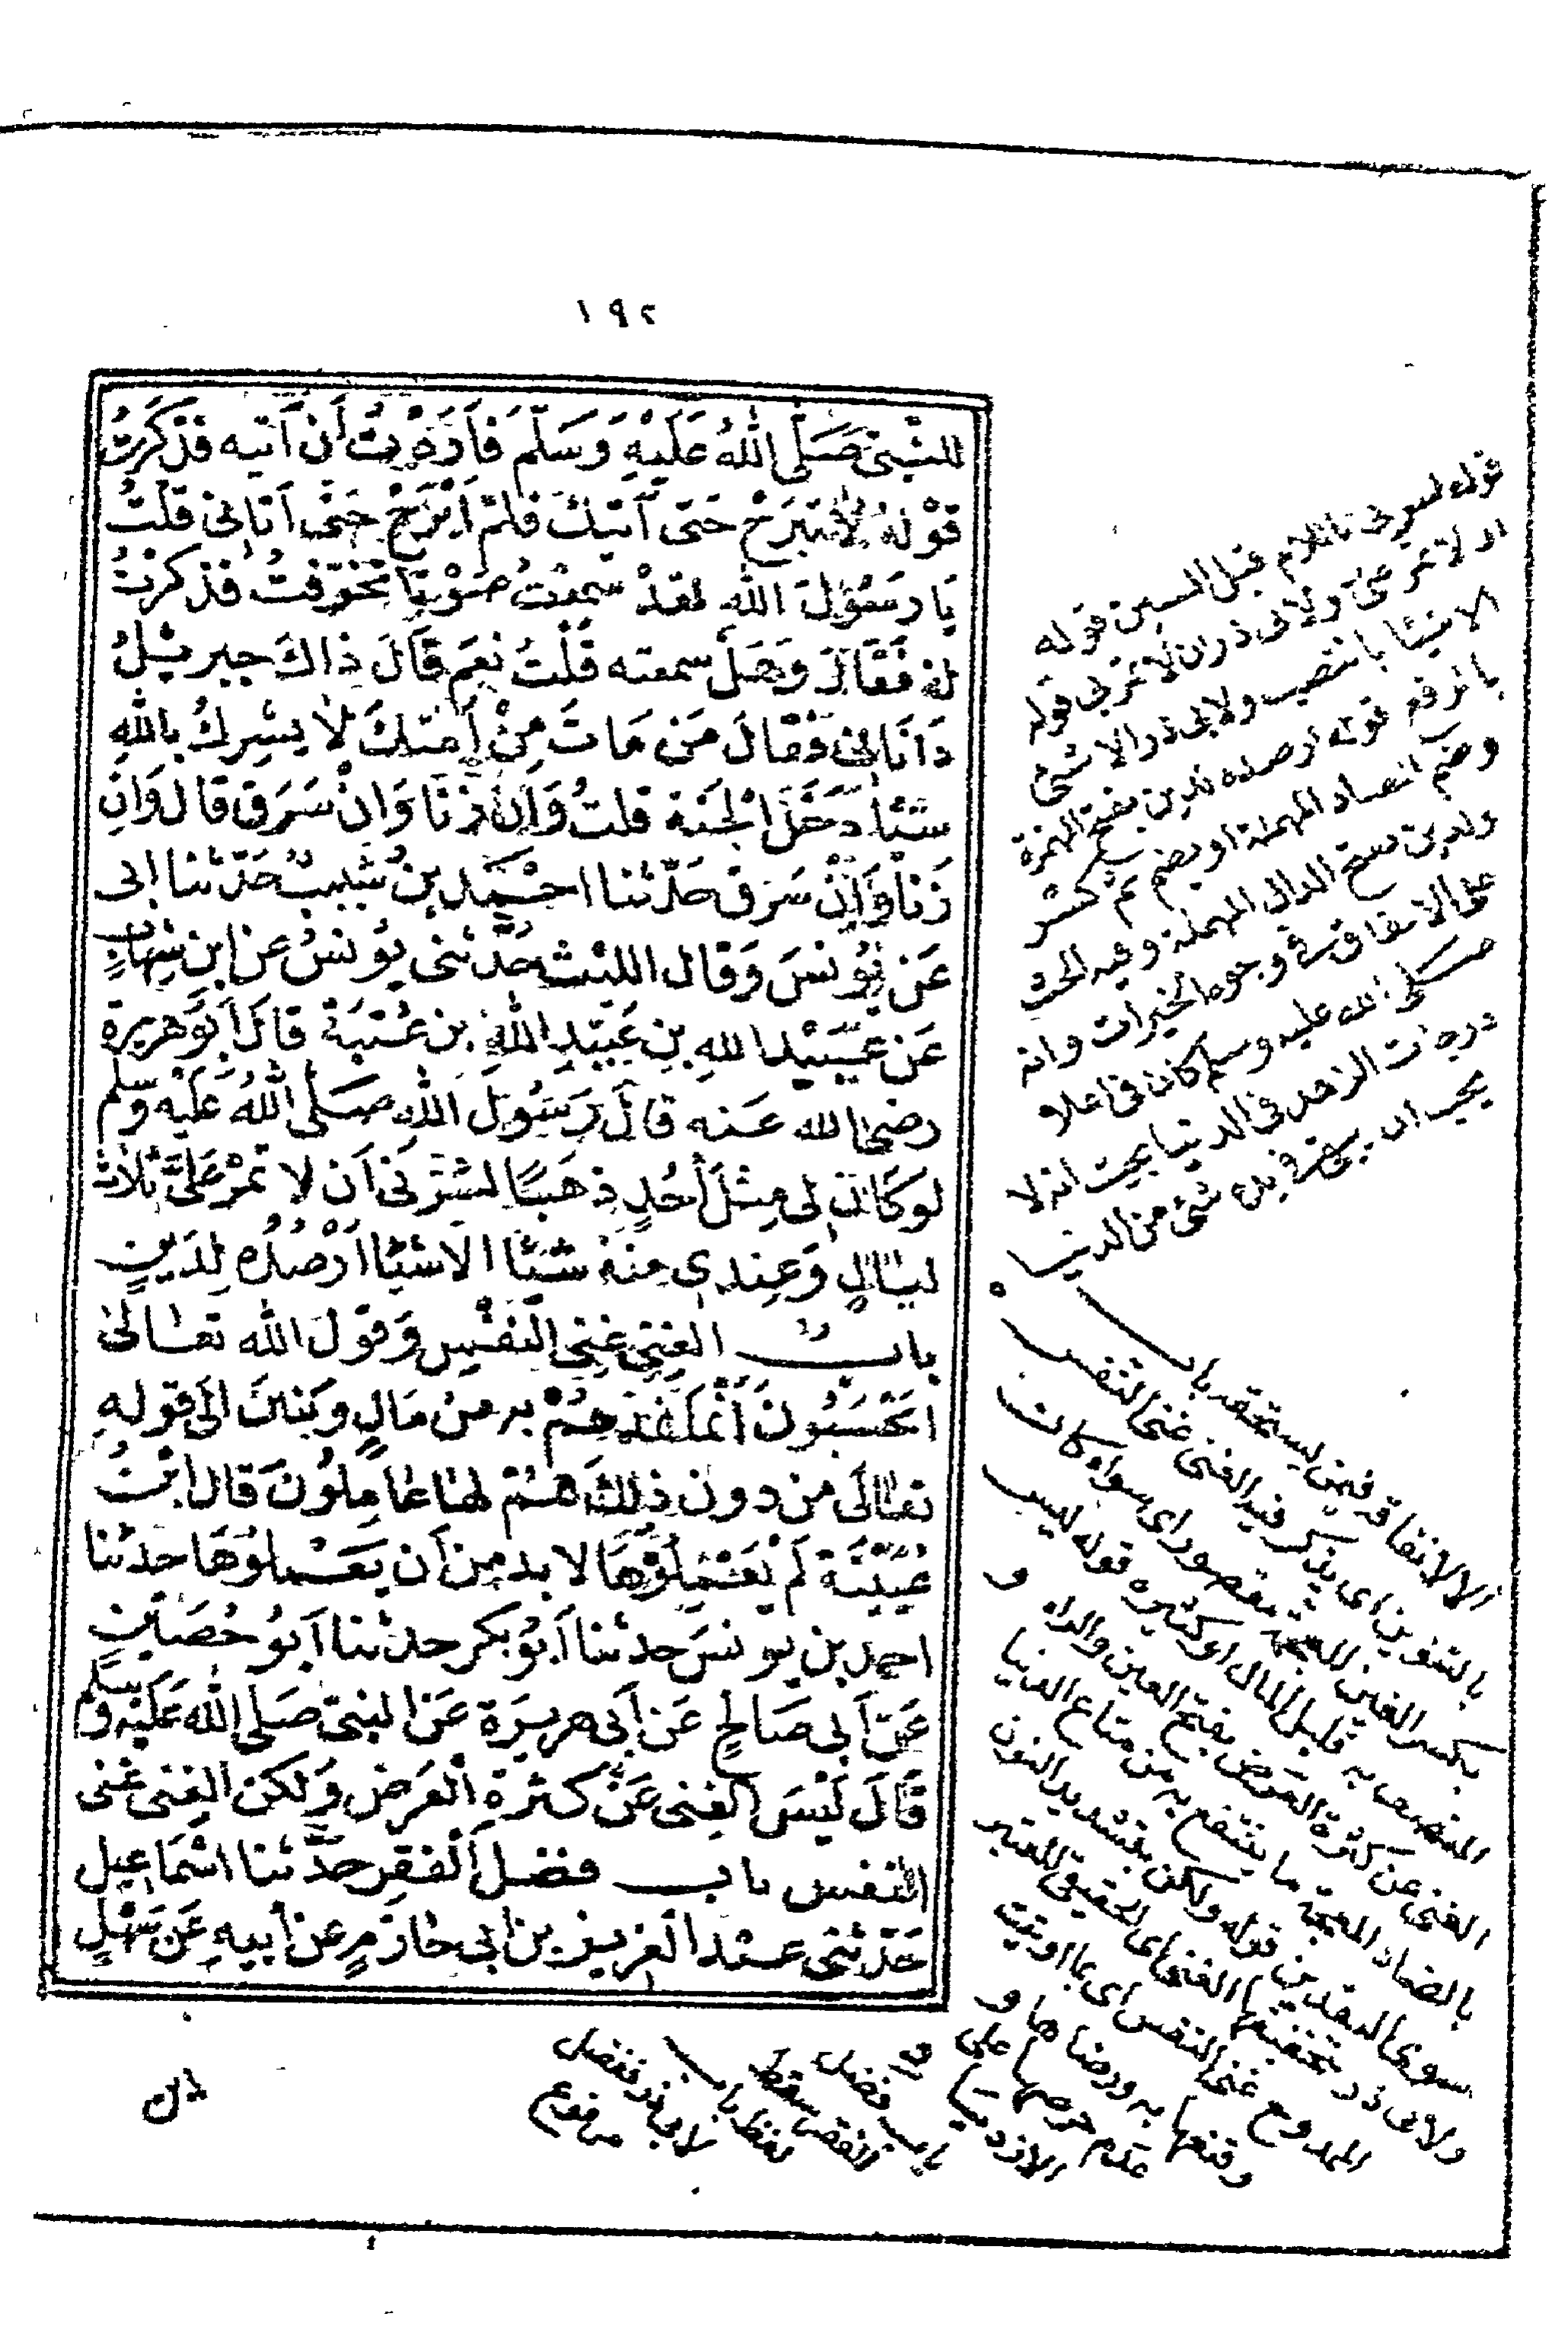 ١٩٢
للنبي صَلَّى اللهُ عَلَيْهِ وَسَلَّمَ فَأَرَدْتُ أَن آتيه فذكَرتُ
قوْلهُ لا تبرَحْ حَتى آتيكَ فلمْ أبْرَحْ حَتى أتانى قلتُ
يَا رسَوُلَ اللهِ لقدْ سمعْتُ صَوْتًا تخوّفتُ فذكرْتُ
لهُ فَقَالَ وَهَلْ سمعته قُلْتُ نعَم قَالَ ذاكَ جبريلُ
أتَانى فقالَ مَن مَاتَ مِنْ أمتكَ لاَ يشرِكُ باللهِ
شيْئًا دَخَلَ الجَنة قلتُ وَإن زنَا وَإنْ سَرَق قال وَإن
زَنا وَإنْ سَرَق حَدّثنا احْمَد بن شَبيبٍ حَدّثنا ابى
عَن يُونسَ وَقال الليْث حَدّثنى يوُنسُ عن ابنِ شِهابٍ
عَن عُبَيْد الله بنِ عَبْدِ اللهِ بن عُتبَة قالَ أبوُ هريرة
رضى الله عَنه قالَ رَسُولُ اللهِ صَلى اللهُ عَلَيْه وَسلم
لوكَان لى مِثلَ أحُدٍ ذهَبًا لسَرّنى أن لا تمرّ عَلىَّ ثلاث
ليالٍ وَعِندى منهُ شىْءٌ الا شيْئًا أرْصُدُه لِدَيْنٍ
باب الغِنى غِنى النفْسِ وَقوْلِ الله تعَالى
ايَحْسَبُونَ أنَّمَا نمدهُمْ به من مَالٍ وَبَنينَ الَى قوله
تعَالَى من دون ذلِكَ هُمْ لهَا عَامِلوُنَ قال ابْنُ
عُيَيْنَة لمْ يَعْمَلوُهَا لا بد من أن يَعْملوُهَا حدثنا
احمد بن يونسَ حدثنا أبوُ بكر حدثنا أبوُ حُصَينٍ
عَنْ أبى صَالحٍ عَن أبى هريرَة عَن النبى صَلى الله عَليْه وسلم
قَالَ ليْسَ الغِنى عَنْ كَثرةِ العَرَضِ وَلكن الغِنى غنى
النفس باب فضل الفقرِ حدّثنا اسْمَاعيل
حَدّثنى عبْد العَزيز بن أبى حازمٍ عن أبيهِ عَن سَهْلٍ
قوله لسرنى باللام قبل السين قوله
ان لا تمر على ولابى ذر ان لا تمر بى قوله
الا شيئا بالنصب ولابى ذر الا شئ
بالرفع قوله ارصده لدين بفتح الهمزة
وضم الصاد المهملة او بضم ثم كسر
ولدين بفتح الدال المهملة وفيه الحث
على الانفاق فى وجوه الخيرات وانه
صلى الله عليه وسلم كان فى اعلا
درجات الزهد فى الدنيا بحيث انه لا
يحب ان يبقى فى يده شئ من الدنيا
الا لانفاقه فيمن يستحقه باب
بالتنوين اى يذكر فيه الغنى غنى النفس
بكسر الغين المعجمة مقصور اى سواء كان
المتصف به قليل المال او كثيره قوله ليس
الغنى عن كثرة العرض بفتح العين والراء و
بالضاد المعجمة ما ينتفع به من متاع الدنيا
سوى النقدين قوله ولكن بتشديد النون
ولابى ذر تخفيفها الغنى اى الحقيقى المعتبر
الممدوح غنى النفس اى بما اوتيت
وقنعها به ورضاها و
عدم حرصها على
الازدياد
باب فضل
الفقر سقط
لفظ باب
لابى ذر ففضل
مرفوع